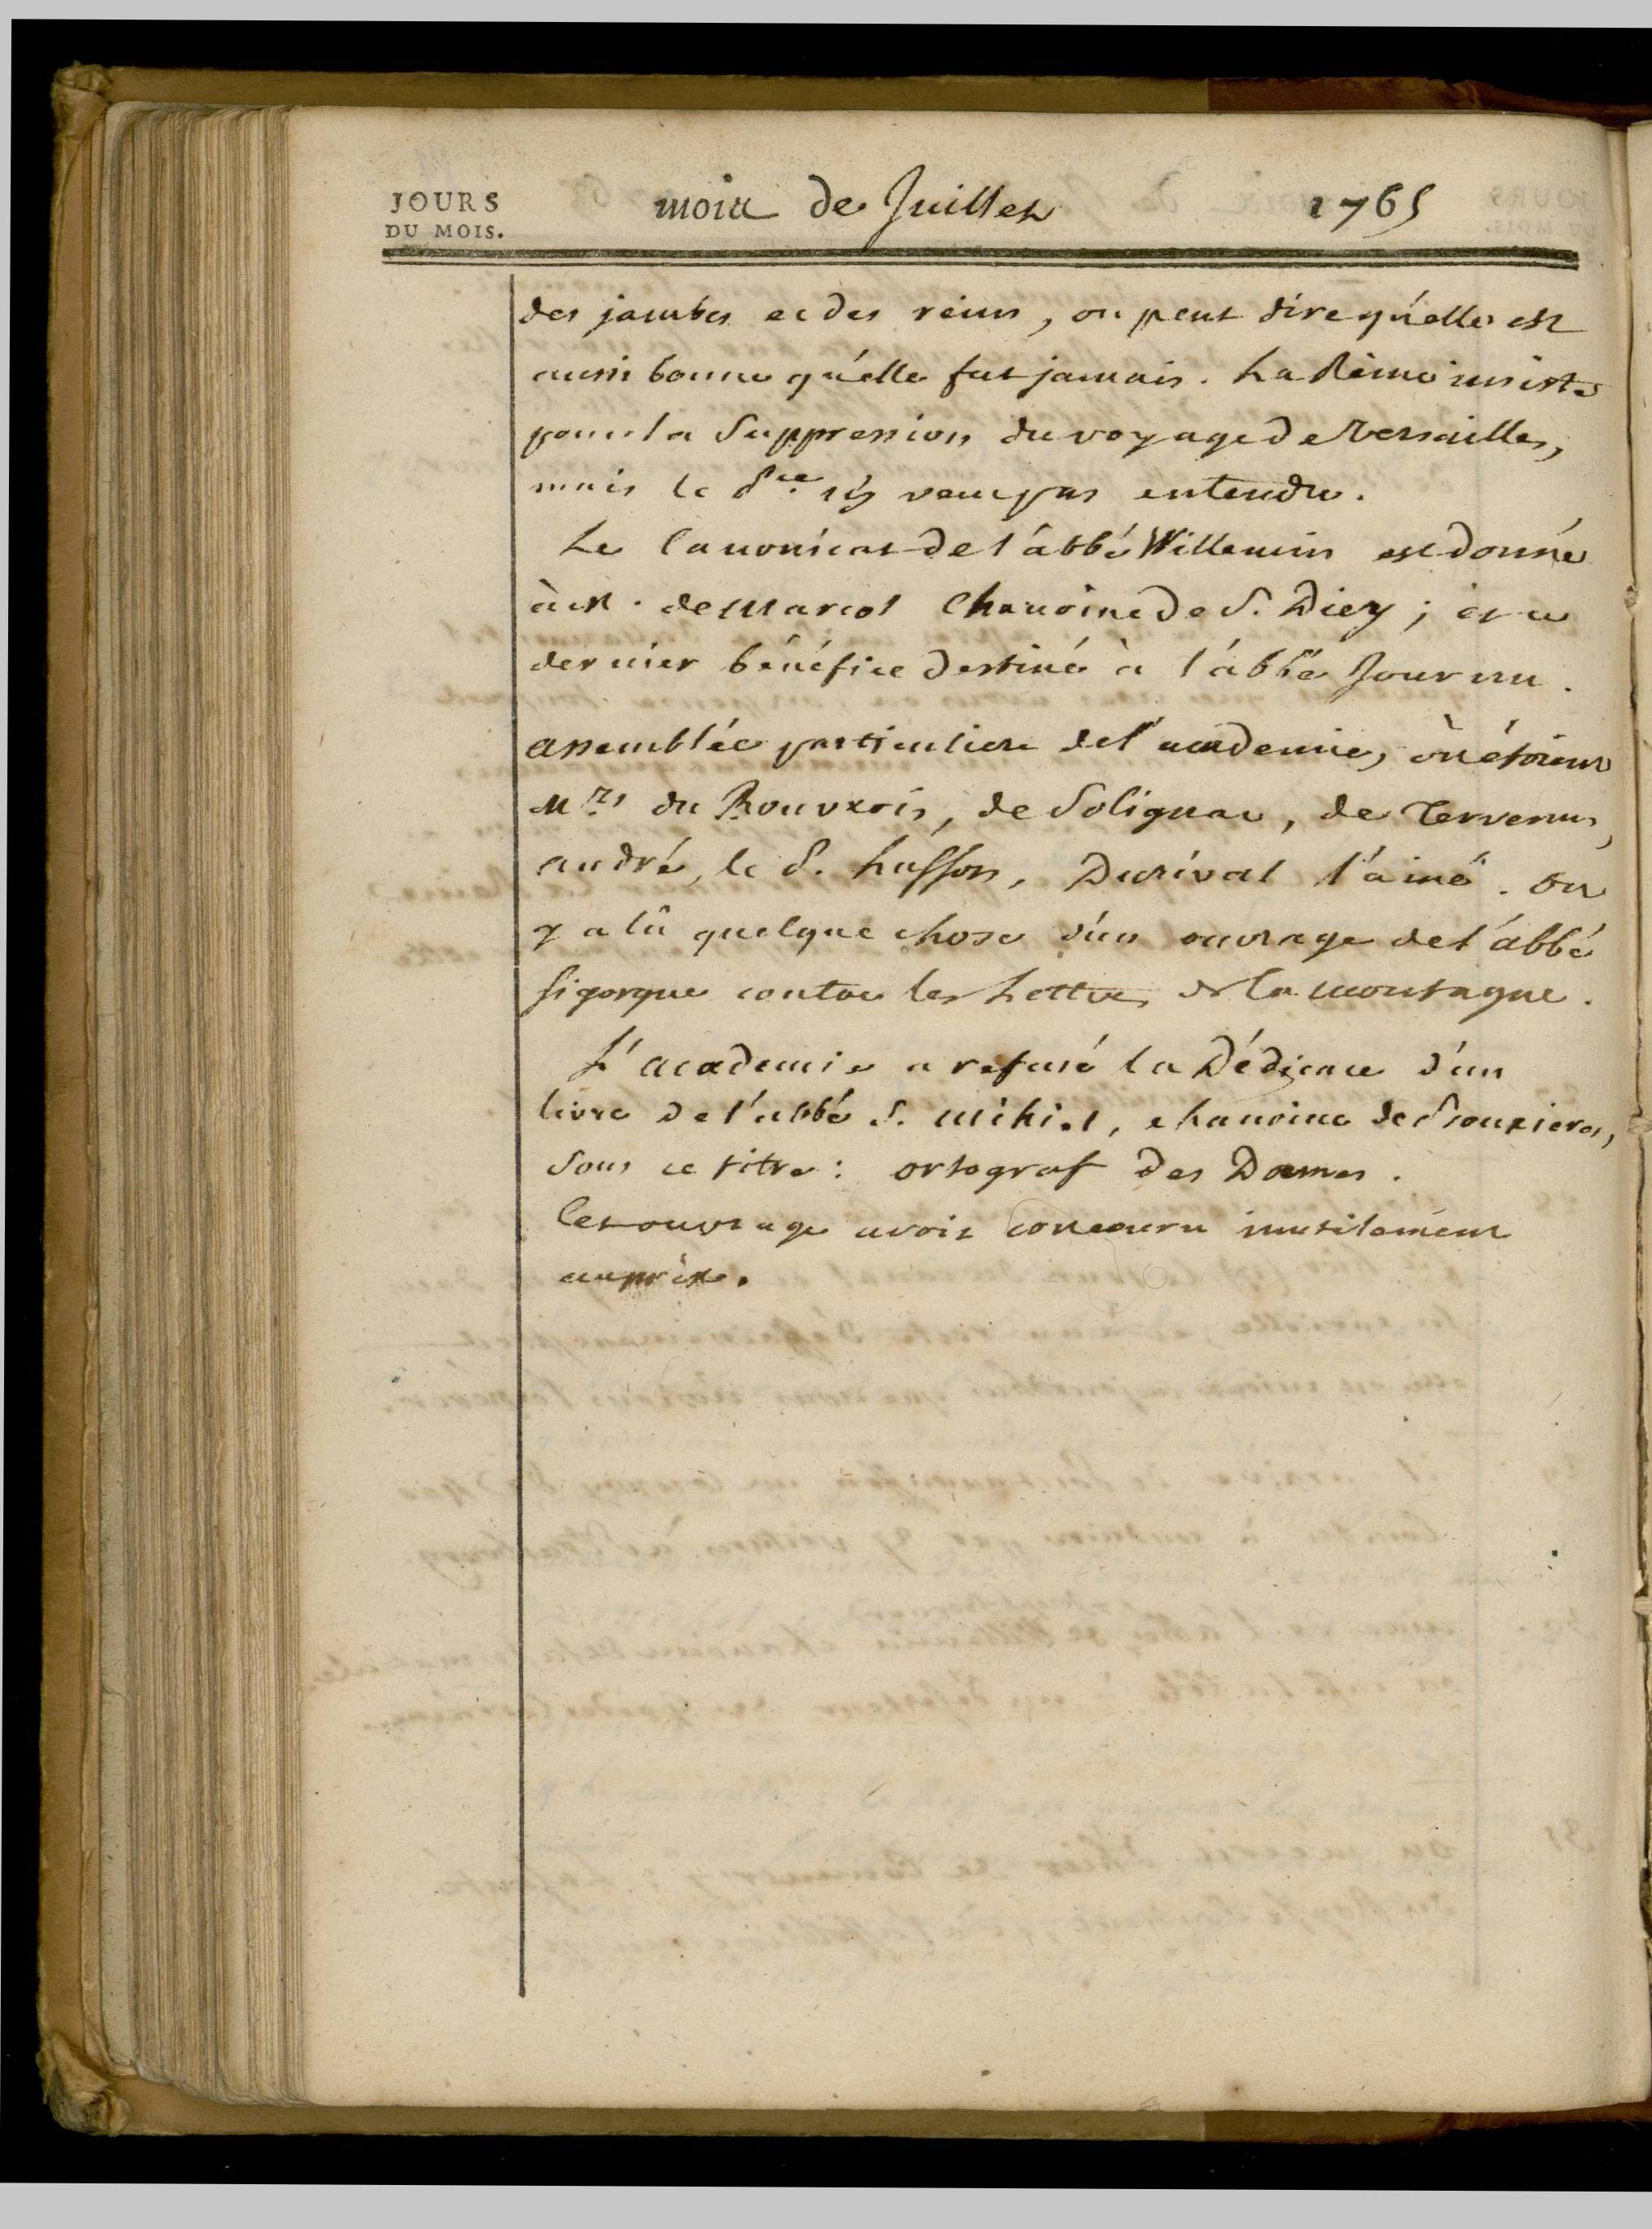 JOURS
DU MOIS.
mois de Juillet 1765
des jambes et des reins, on peut dire qu'elle est
aussi bonne qu'elle fut jamais. La Reine insiste
pour la Suppression du voyage de Versailles,
mais le n'y veut pas entendre.
Le Canonicat de l'abbé Willemin est donné
à M. de Marcol Chanoine de S. Diey; et ce
dernier bénéfice destiné à l'abbé Journu.
assemblée particuliere de l'academie, où étoient
Mrs du Rouvrois, de Solignac, de Tervenus,
andré, le P. husson, Durival l'ainé. on
y a lû quelque chose d'un ouvrage de l'abbé
Sigorgne contre les Lettres de la montagne.
L'academie a refusé la Dédicace d'un
livre de l'abbé S. Mihiel, chanoine de
sous ce titre: ortograf des Dames.
Cet ouvrage avoit concouru inutilement
au prix.